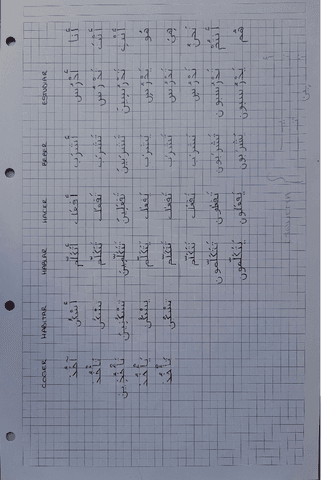 COGER HABITAR HABLAR HACER BEBER ESTUDIAR
أَنَا أَدْرُسُ أَشْرَبُ أَفْعَلُ أَتَكَلَّمُ أَسْكُنُ آخُذُ
أَنْتَ تَدْرُسُ تَشْرَبُ تَفْعَلُ تَتَكَلَّمُ تَسْكُنُ تَأْخُذُ
أَنْتِ تَدْرُسِينَ تَشْرَبِينَ تَفْعَلِينَ تَتَكَلَّمِينَ تَسْكُنِينَ تَأْخُذِينَ
هُوَ يَدْرُسُ يَشْرَبُ يَفْعَلُ يَتَكَلَّمُ يَسْكُنُ يَأْخُذُ
هِيَ تَدْرُسُ تَشْرَبُ تَفْعَلُ تَتَكَلَّمُ تَسْكُنُ تَأْخُذُ
نَحْنُ نَدْرُسُ نَشْرَبُ نَفْعَلُ نَتَكَلَّمُ
أَنْتُمْ تَدْرُسُونَ تَشْرَبُونَ تَفْعَلُونَ تَتَكَلَّمُونَ
هُمْ يَدْرُسُونَ يَشْرَبُونَ يَفْعَلُونَ يَتَكَلَّمُونَ